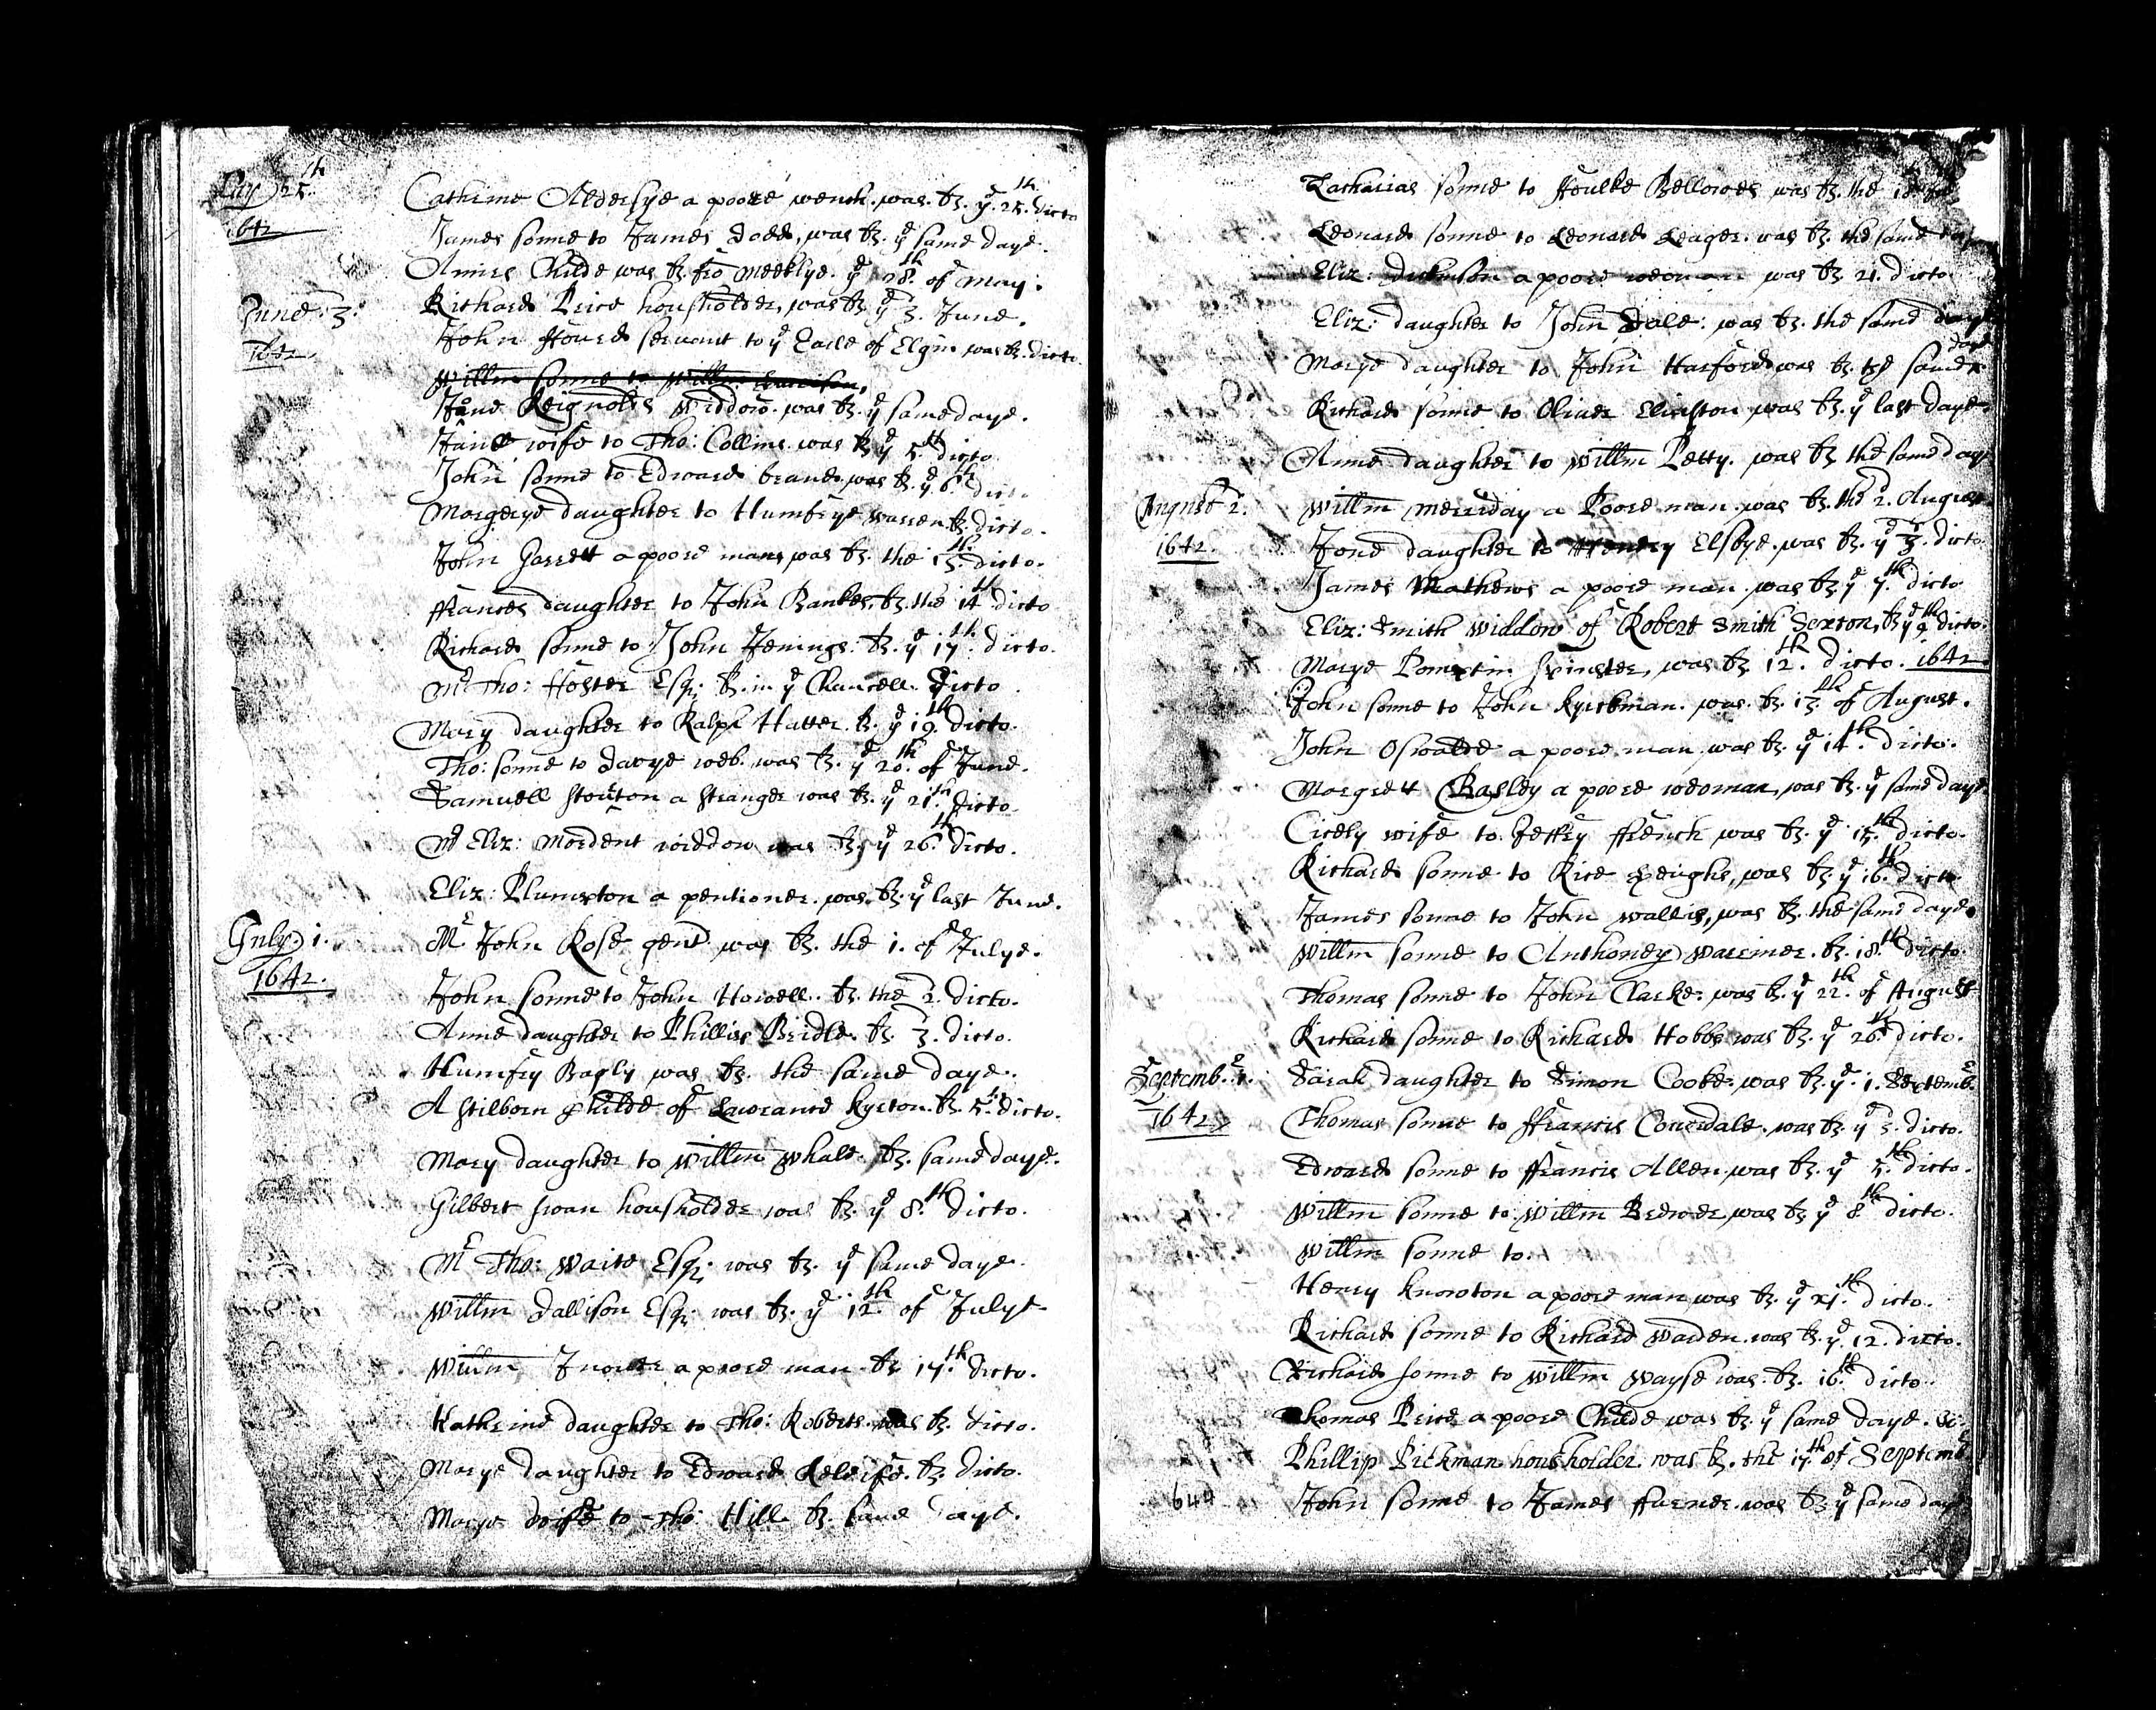 25th
Catherine Aldersye a poore wench was b. ye 25th dicto
1642
James sonne to James Dodd, was b. ye same daye.
Childe was b. fro Meeklye ye 28th of May.
June. 3.
Richard Price housholder, was b. ye 3. June.
1642
John Howard servant to ye Earle of Elgin was b. dicto
Willm sonne to Willm
Jane Reignolds Widdow was b. ye same daye.
Jane wife to Tho: Collins was b. ye 5th dicto
John sonne to Edward brand was b. ye 6th dicto
Margerye daughter to Humfrye Warren b. dicto.
John Garrett a poore man was b. the 13th dicto.
ffrances daughter to John Bankes b. the 14th dicto
Richard sonne to John Jenings b. ye 17th dicto.
Mr Tho: ffoster Esqr b. in ye Chancell dicto.
Mary daughter to Ralph Hatter b. ye 19th dicto.
Tho: sonne to Davye Web was b. ye 20th of June.
Samuell Stouton a stranger was b. ye 21th dicto
Mrs Eliz: Mordent widdow was b. ye 26th dicto.
Eliz: Plumpton a pentioner was b. ye last June.
July. 1.
Mr John Rose gent was b. the 1. of Julye.
1642.
John sonne to John Howell b. the 2. dicto.
Anne daughter to Phillip Bridle b. 3. dicto.
Humfry Bagly was b. the same daye.
A stilborn Childe of Lawrance Kyrton b. 5th dicto.
Mary daughter to Willm Whale b. same daye.
Gilbert Swan housholder was b. ye 8th dicto.
Mr Tho: Waite Esqr was b. ye same daye.
Willm Dallison Esqr was b. ye 12th of Julye
Willm a poore man b. 17th dicto.
Katherine daughter to Tho: Roberts was b. dicto.
Marye daughter to Edward b. dicto.
Marye wife to Tho: Hill b. same daye.
Zacharias sonne to ffoulke Bellowes was b. the 18th
Leonard sonne to Leonard Leager was b. the same
Eliz: Dickenson a poore woman was b. 21. dicto
Eliz: daughter to John Dale: was b. the same daye
Marye daughter to John Harford was b. the same daye
Richard sonne to Oliver Elinston was b. ye last daye.
Anne daughter to Willm Petty. was b. the same day
August 2.
Willm Merriday a Poore man was b. the 2. August
1642.
Jone daughter to Henry Elsbye was b. ye 3. dicto
James Mathews a poore man was b. ye 7th dicto
Eliz: Smith Widdow of Robert Smith Sexton, b. ye 9th dicto.
Marye spinster, was b. 12th dicto. 1642
John sonne to John Kyrckman was b. 13th of August.
John Oswalde a poore man was b. ye 14th dicto.
Margrett Bagley a poore woman, was b. ye same daye
Cicely wife to Jeffry ffrench was b. ye 15th dicto.
Richard sonne to Rice was b. ye 16th dicto
James sonne to John Wallis, was b. the same daye
Willm sonne to Anthoney Warriner b. 18th dicto.
Thomas sonne to John Clarke was b. ye 22th of August
Richard sonne to Richard Hobbs was b. ye 26th dicto.
Septemb. 1.
Sarah daughter to Simon Cooke was b. ye 1. Septemb.
1642
Thomas sonne to ffrancis Coverdale was b. ye 3. dicto.
Edward sonne to ffrancis Allen was b. ye 5th dicto.
Willm sonne to Willm was b. ye 8th dicto.
Willm sonne to.
Henry Knowton a poore man was b. ye dicto.
Richard sonne to Richard Warden was b. ye 12. dicto.
Richard sonne to Willm Wayse was b. 16th dicto.
Thomas Price a poore Childe was b. ye same daye.
Phillip Pickman housholder was b. the 17th of Septemb
John sonne to James was b. ye same daye